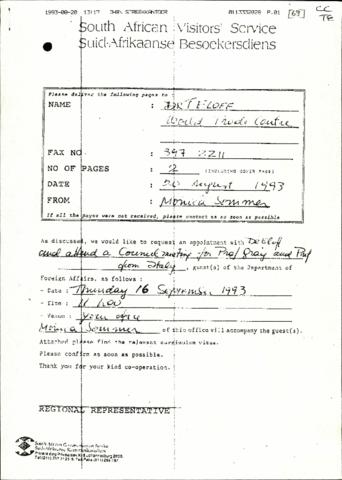 1993-08-20 13:17 P.01 [69] CC
South African Visitors' Service
Suid-Afrikaanse Besoekersdiens
Please deliver the following pages to :
NAME : DR T ELOFF
World Trade Centre
FAX NO : 397 2211
NO OF PAGES : 2 (INCLUDING COVER PAGE)
DATE : 20 August 1993
FROM : Monica Sommer
If all the pages were not received, please contact us as soon as possible
As discussed, we would like to request an appointment with Dr Eloff
and attend a Council meeting for Prof Gray and Prof
from Italy, guest(s) of the Department of
Foreign Affairs, as follows :
- Date : Thursday 16 September 1993
- Time : 11h00
- Venue : Your office
Monica Sommer of this office will accompany the guest(s).
Attached please find the relevant curriculum vitae.
Please confirm as soon as possible.
Thank you for your kind co-operation.
REGIONAL REPRESENTATIVE